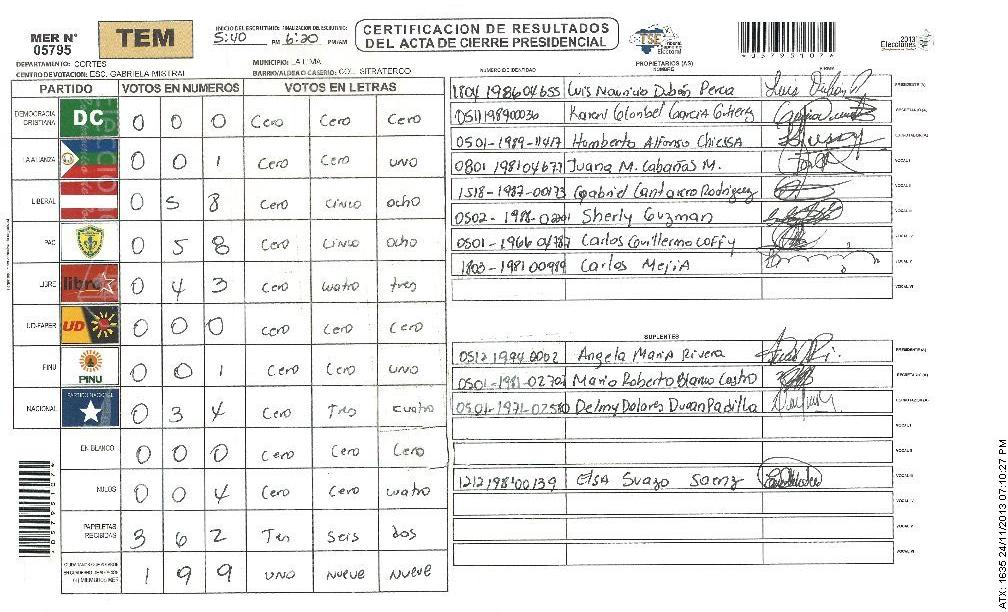 MER N° 05795
TEM
INICIO DEL ESCRUTINIO: 5:40 PM
FINALIZACION DEL ESCRUTINIO: 6:20 PM/AM
CERTIFICACION DE RESULTADOS
DEL ACTA DE CIERRE PRESIDENCIAL
TSE
Tribunal Supremo Electoral
2013
Elecciones
DEPARTAMENTO: CORTES
MUNICIPIO: LA LIMA
CENTRO DE VOTACION: ESC. GABRIELA MISTRAL
BARRIO/ALDEA O CASERIO: COL. SITRATERCO
PARTIDO VOTOS EN NUMEROS VOTOS EN LETRAS
DEMOCRACIA CRISTIANA DC 0 0 0 Cero Cero Cero
LA ALIANZA 0 0 1 Cero Cero uno
LIBERAL 0 5 8 Cero Cinco ocho
PAC 0 5 8 Cero Cinco ocho
LIBRE libre 0 4 3 Cero cuatro tres
UD-FAPER UD 0 0 0 Cero Cero Cero
PINU PINU 0 0 1 Cero Cero uno
NACIONAL PARTIDO NACIONAL 0 3 4 Cero Tres cuatro
EN BLANCO 0 0 0 Cero Cero Cero
NULOS 0 0 4 Cero Cero cuatro
PAPELETAS RECIBIDAS 3 6 2 Tres seis dos
1 9 9 uno nueve nueve
PROPIETARIOS (AS)
NUMERO DE IDENTIDAD NOMBRE FIRMA
1804 198604655 Luis Mauricio Dubón Perca PRESIDENTE (A)
0511198900036 Karen Clonibel Garcia Gutierrez SECRETARIO (A)
0501-1989-11417 Humberto Alfonso Chiessa ESCRUTADOR (A)
0801 198104677 Juana M. Cabañas M. VOCAL I
1518-1987-00173 Gabriel Cantarero Rodriguez VOCAL II
0502-1988-02201 Sherly Guzman VOCAL III
0501-1966 04787 Carlos Guillermo Coffy VOCAL IV
1803-1981 00989 Carlos Mejia VOCAL V
VOCAL VI
SUPLENTES
0512 1994 0002 Angela Maria Rivera PRESIDENTE (A)
0501-1981-02702 Mario Roberto Blanco Castro SECRETARIO (A)
0501-1971-02580 Delmy Dolores Duran Padilla ESCRUTADOR (A)
VOCAL I
VOCAL II
1212198100139 Elsa Suazo Saenz VOCAL III
VOCAL IV
VOCAL V
VOCAL VI
ATX: 1635 24/11/2013 07:10:27 PM